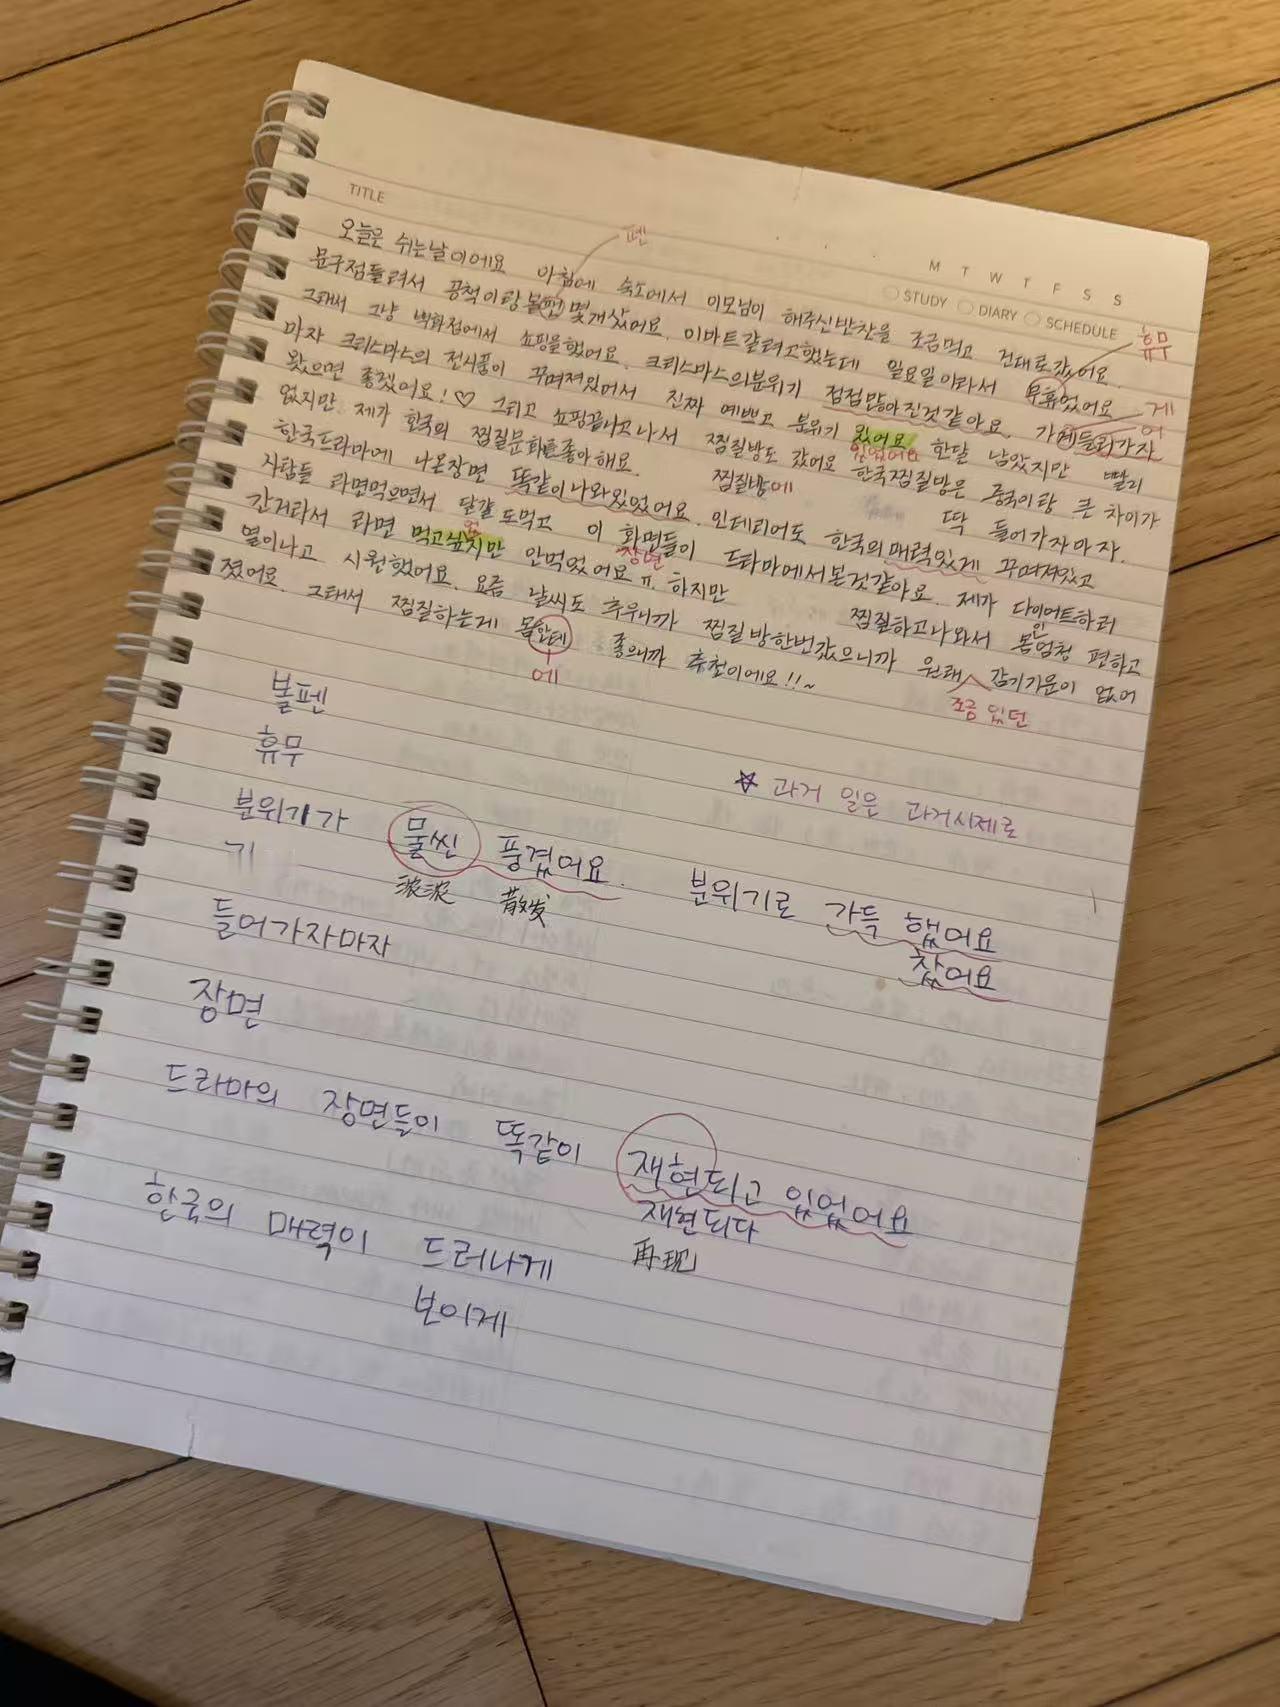 TITLE
M T W T F S S
STUDY DIARY SCHEDULE
펜
오늘은 쉬는날이에요 아침에 숙소에서 이모님이 해주신반찬을 조금먹고 건대로갔어요.
휴무
문구점들려서 공책이랑 볼 몇개샀어요. 이바트갈려고했는데 일요일이라서 무휴었어요
그래서 그냥 백화점에서 쇼핑을했어요. 크리스마스의분위기 점점많아진것같아요. 가게들리가자
게
어
마자 크리스마스의 전시품이 꾸며져있어서 진짜 예쁘고 분위기 있어요 한달 남았지만 빨리
있었어요
왔으면 좋겠어요! ♡ 그리고 쇼핑끝나고나서 찜질방도 갔어요 한국찜질방은 중국이랑 큰 차이가
없지만 제가 한국의 찜질문화를좋아해요. 찜질방에 딱 들어가자마자.
한국드라마에 나온장면 똑같이나와있었어요. 인테리어도 한국의매력있게 꾸며져있고
사람들 라면먹으면서 달걀도먹고 이 화면들이 드라마에서본것같아요. 제가 다이어트하러
장면
간거라서 라면 먹고싶지만 안먹었어요ㅠ. 하지만 찜질하고나와서 몸엄청 편하고
열이나고 시원했어요. 요즘 날씨도 추우니까 찜질방한번갔으니까 원래 감기기운이 없어
조금 있던
졌어요. 그래서 찜질하는게 몸한테 좋으니까 추천이에요!!~
에
볼펜
휴무
☆ 과거 일은 과거시제로
분위기가 물씬 풍겼어요. 분위기로 가득 했어요
浓浓 散发 찼어요
들어가자마자
장면
드라마의 장면들이 똑같이 재현되고 있었어요
재현되다
再现
한국의 매력이 드러나게
보이게